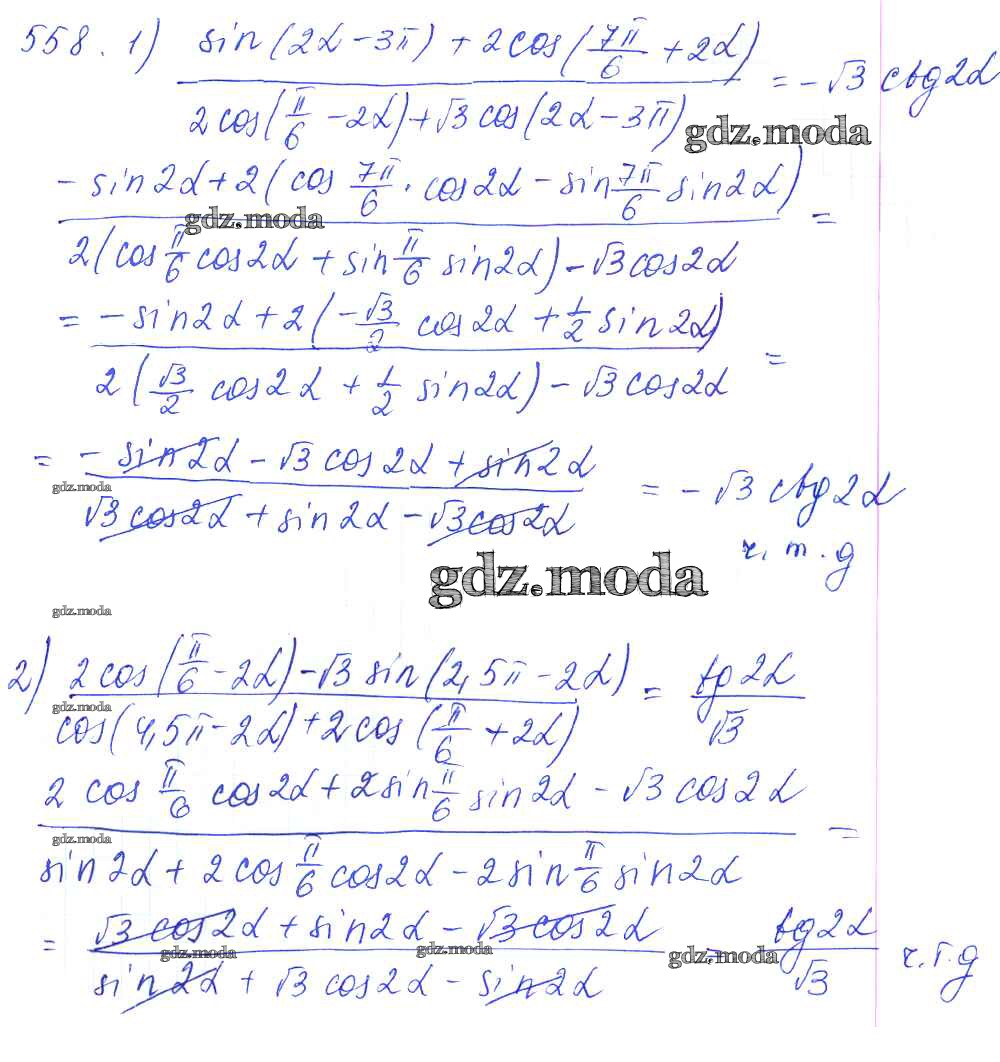 558. 1) sin(2α-3π) + 2cos(7π/6 + 2α) / 2cos(π/6 - 2α) + √3 cos(2α-3π) = -√3 ctg2α
gdz.moda
-sin2α + 2(cos 7π/6 · cos2α - sin 7π/6 sin2α) / 2(cos π/6 cos2α + sin π/6 sin2α) - √3cos2α =
gdz.moda
= -sin2α + 2(-√3/2 cos2α + 1/2 sin2α) / 2(√3/2 cos2α + 1/2 sin2α) - √3cos2α =
= -sin2α - √3cos2α + sin2α / √3cos2α + sin2α - √3cos2α = -√3 ctg2α
gdz.moda
ч.т.д
gdz.moda
gdz.moda
2) 2cos(π/6 - 2α) - √3 sin(2,5π - 2α) / cos(4,5π - 2α) + 2cos(π/6 + 2α) = tg2α / √3
gdz.moda
2cos π/6 cos2α + 2sin π/6 sin2α - √3cos2α / sin2α + 2cos π/6 cos2α - 2sin π/6 sin2α =
gdz.moda
= √3cos2α + sin2α - √3cos2α / sin2α + √3cos2α - sin2α = tg2α / √3 ч.т.д
gdz.moda gdz.moda gdz.moda